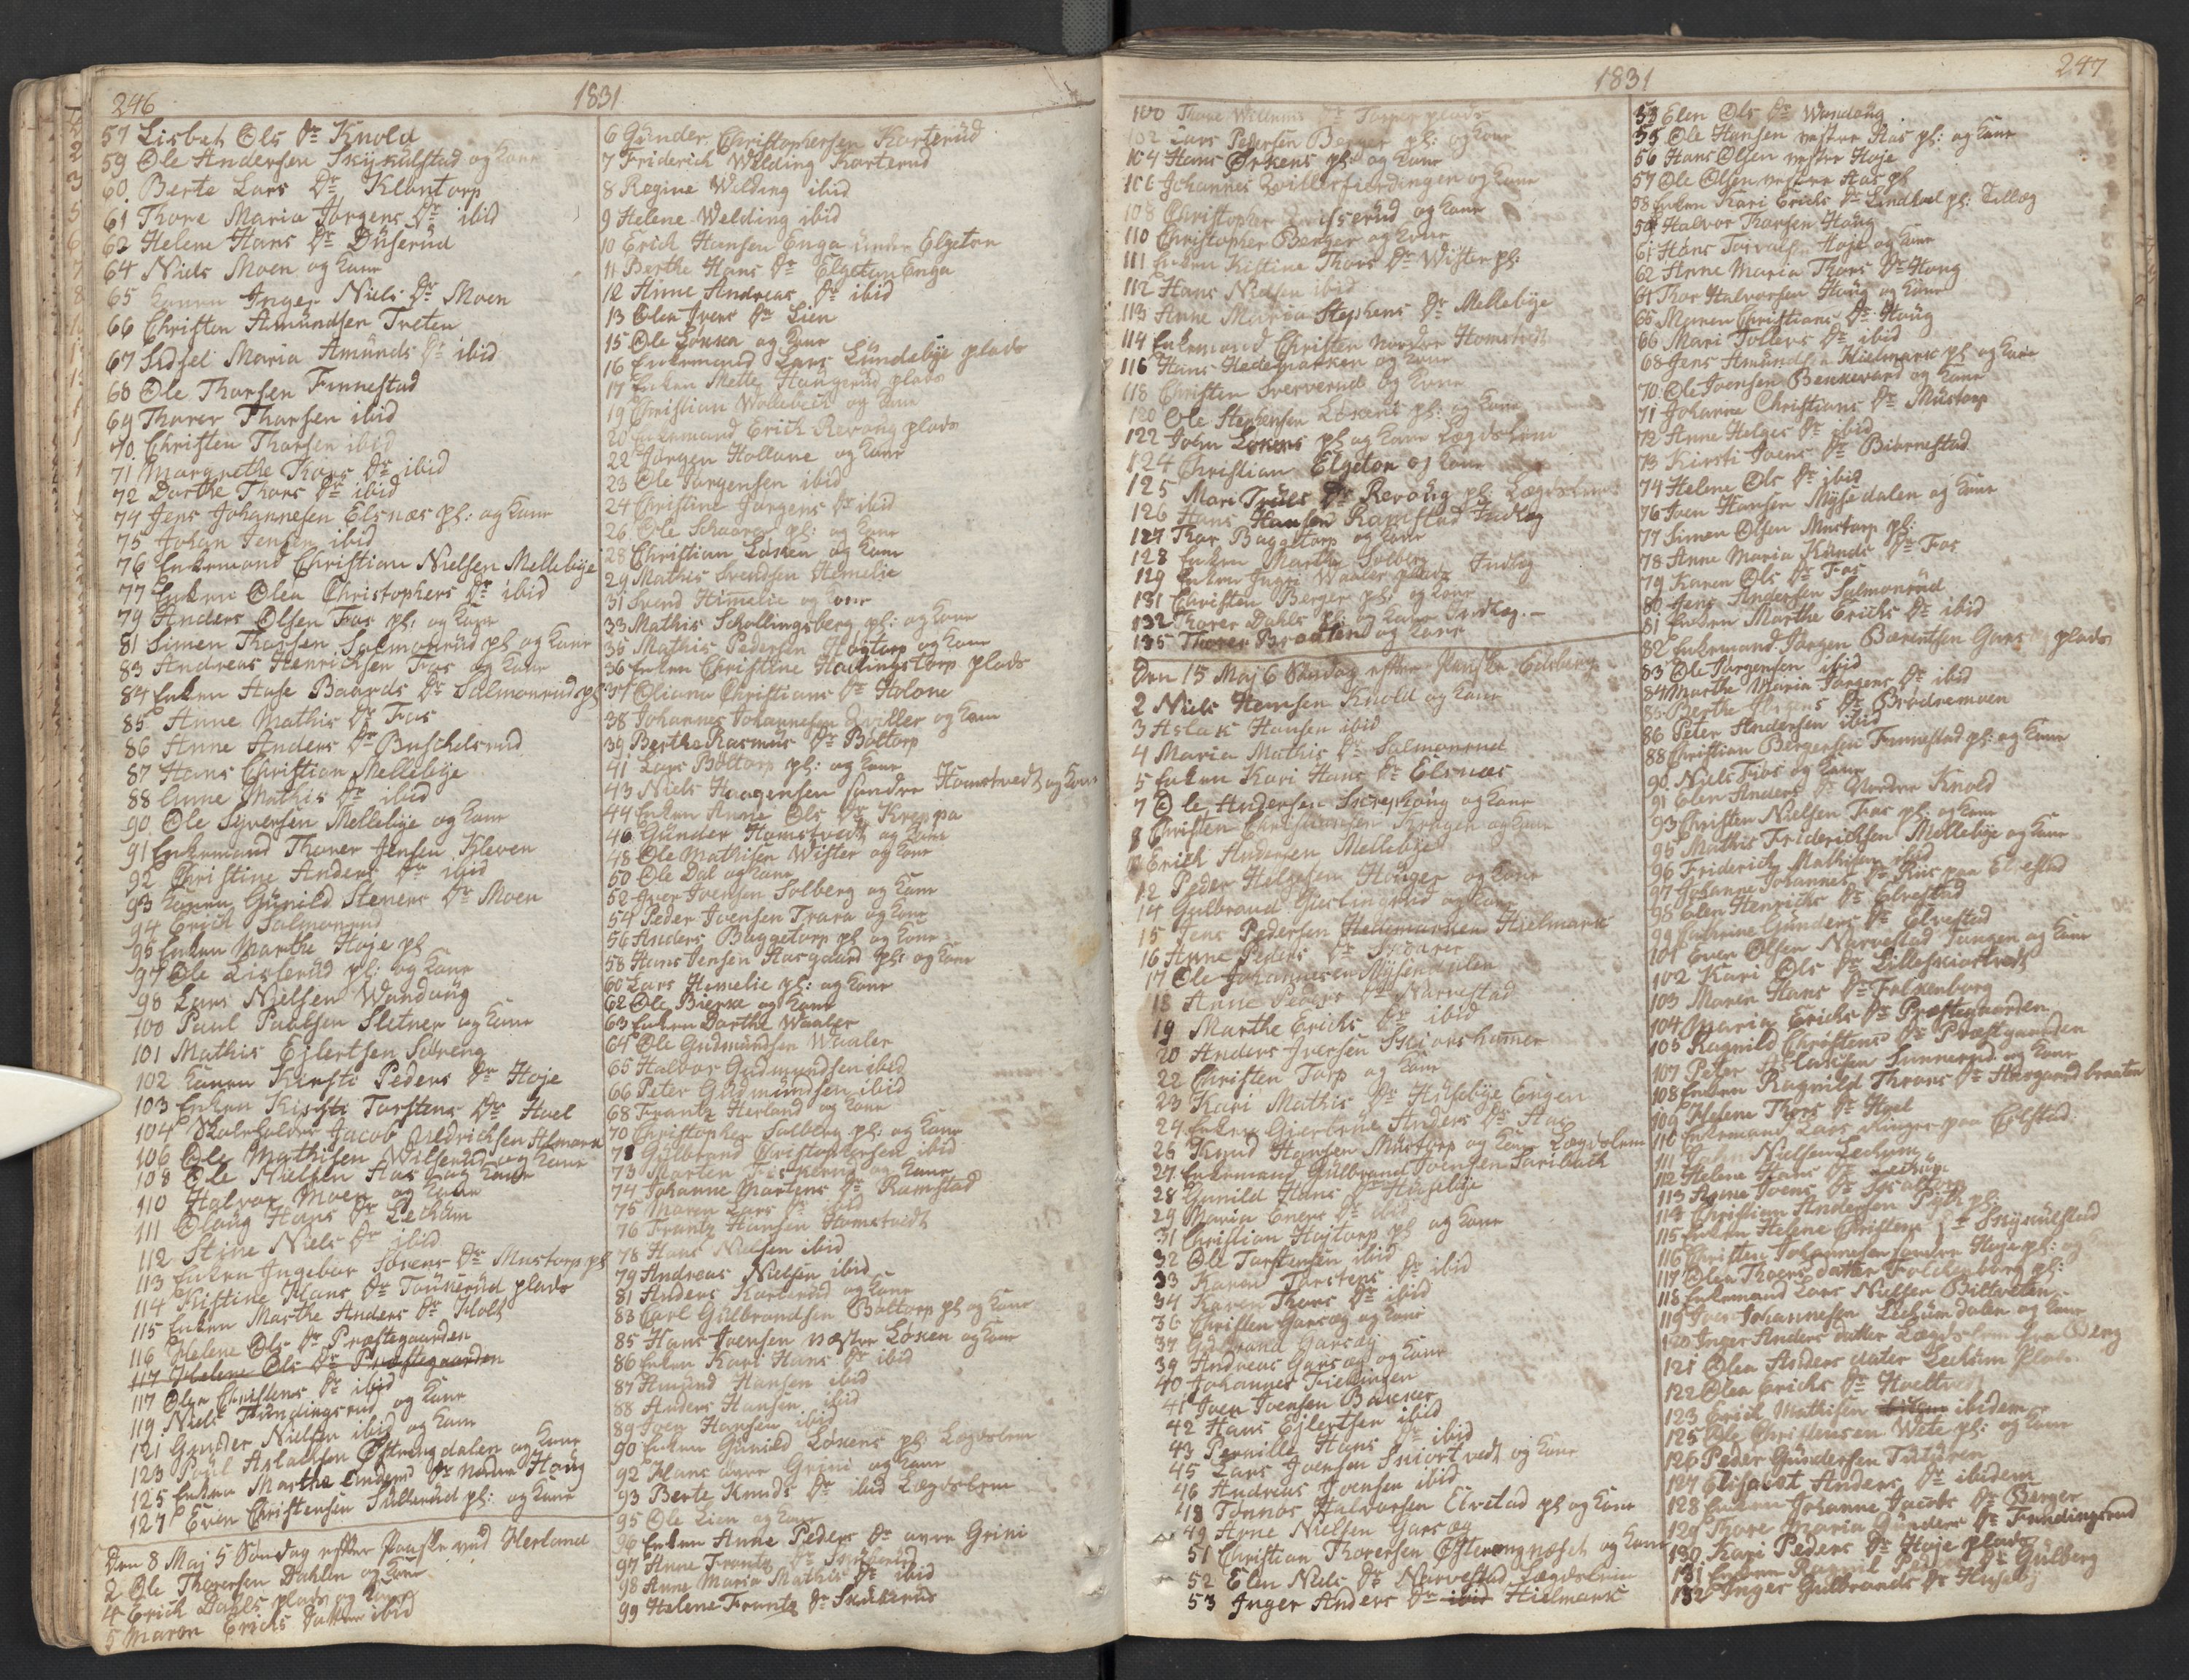 246
1831
57 Lisbet Ols Dr Knold
59 Ole Andersen Skÿkulstad og Kone
60. Berte Lars Dr Klontorp
61 Thore Maria Jørgens Dr ibid
62 Helene Hans Dr Düserüd
64 Niels Moen og Kone
65 Konen Inger Niels Dr Moen
66 Christen Amündsen Treten
67 Sidsel Maria Amünds Dr ibid
68 Ole Thorsen Finnestad
69 Thorer Thorsen ibid
70. Christen Thorsen ibid
71 Margrethe Thors Dr ibid
72 Dorthe Thors Dr ibid
74 Jens Johannesen Elsnæs pl: og Kone
75 Johan Jensen ibid
76 Enkemand Christian Nielsen Mellebÿe
77 Enken Olea Christophers Dr ibid
79 Anders Olsen Fos pl: og Kone
81 Simen Thorsen Salmonrüd pl og Kone
83 Andreas Henrichsen Fos og Kone
84 Enken Aase Baards Dr Salmonrud pl
85 Anne Mathis Dr Fos
86 Anne Anders Dr Buschelsrud
87 Hans Christian Mellebÿe
88 Anne Mathis Dr ibid
90. Ole Syversen Mellebÿe og Kone
91 Enkemand Thorer Jensen Kleven
92 Christine Anders Dr ibid
93 Konen Günild Steners Dr Moen
94 Erich Salmonrud
95 Enken Marthe Høje pl
97 Ole Lisserüd pl: og Kone
98 Lars Nielsen Wandüg
100 Paul Paulsen Sletner og Kone
101 Mathis Ejlertsen Søreng
102 Konen Kirsti Peders Dr Høje
103 Enken Kirsti Torstens Dr Hoel
104 Skoleholder Jacob Dildrichsen Helmark
106 Ole Mathisen Wilserüd og Kone
108 Ole Nielsen Aas og Kone
110 Halvor Moen og Kone
111 Olaug Hans Dr Lecküm
112 Stine Niels Dr ibid
113 Enken Ingebor Sørens Dr Mustorp pl
114 Kistine Hans Dr Tonkerüd plads
115 Enken Marthe Anders Dr Holt
116 Helene Ols Dr Præstegaarden
117 Helene Ols Dr Præstegaarden
117 Olea Christens Dr ibid
119 Niels Fündingsrud og Kone
121 Gunder Nielsen ibid og Kone
123 Poul Aslachsen Østengdalen og Kone
125 Enken Marthe Enders Dr Nordre Haüg
127 Even Christensen Sülleruüd pl: og Kone
Den 8 Maj 5 Søndag efter Paaske ved Herland
2 Ole Thorersen Dahlen og Kone
4 Erich Dahls plads og Kone
5 Maren Erichs Datter ibid
6 Günder Christophersen Korterüd
7 Friderich Welding Korterud
8 Regine Welding ibid
9 Helene Welding ibid
10 Erich Hansen Enga under Elgeton
11 Berthe Hans Dr Elgeton Enga
12 Anne Andreas Dr ibid
13 Olea Ivers Dr Lien
15 Ole Løkka og Kone
16 Enkemand Lars Lündebÿe plads
17 Enken Mette Haügerüd plads
19 Christian Wollebech og Kone
20 Enkemand Erich Revoug plads
22 Jørgen Hollane og Kone
23 Ole Jørgensen ibid
24 Christine Jørgens Dr ibid
26 Ole Skaarer pl: og Kone
28 Christian Løken og Kone
29 Mathis Svendsen Hemelie
31 Svend Himelie og Kone
33 Mathis Schollingsberg pl: og Kone
35 Mathis Pedersen Høgtorp og Kone
36 Enken Christine Hadingstorp plads
37 Oliana Christians Dr Holone
38 Johannes Johannesen Qviller og Kone
39 Berthe Rasmüs Dr Boltorp
41 Lars Boltorp pl: og Kone
43 Niels Haagensen søndre Homstvedt og Kone
44 Enken Anne Ols Dr Kreppa
46 Günder Homstvedt og Kone
48 Ole Mathisen Wister og Kone
50 Ole Dal og Kone
52 Iver Joensen Solberg og Kone
54 Peder Joensen Trara og Kone
56 Anders Buggetorp pl og Kone
58 Hans Jensen Aasgaard pl: og Kone
60 Lars Hemelie pl: og Kone
62 Ole Bierke og Kone
63 Enken Dorthe Waaler
64 Ole Gudmündsen Waaler
65 Halvor Gudmundsen ibid
66 Peter Gudmündsen ibid
68 Frantz Herland og Kone
70 Christopher Solberg pl: og Kone
71 Gülbrand Christophersen ibid
73 Morten Fiskerud og Kone
74 Johanne Mortens Dr Ramstad
75 Maren Lars Dr ibid
76 Frantz Hansen Homstvedt
78 Hans Nielsen ibid
79 Andreas Nielsen ibid
81 Anders Korterüd og Kone
83 Carl Gülbrandsen Boltorp pl og Kone
85 Hans Joensen næstre Løken og Kone
86 Enken Kari Hans Dr ibid
87 Amünd Hansen ibid
88 Anders Hansen ibid
89 Joen Hansen ibid
90 Enken Günild Løkens pl: Lægdslem
92 Hans øvre Grini og Kone
93 Berte Knuds Dr ibid Lægdslem
95 Ole Lien og Kone
96 Enken Anne Peders Dr øvre Grini
97 Anne Frantz Dr Sküberud
98 Anne Maria Mathis Dr ibid
99 Helene Frantz Dr Sküberud
1831
247
100 Thore Willums Dr Torper plads
102 Lars Pedersen Berger pl: og Kone
104 Hans Ørkens pl: og Kone
106 Johannes Qvillerfierdingen og Kone
108 Christopher Lisserüd og Kone
110 Christopher Berger og Kone
111 Enken Kistine Thors Dr Wister pl:
112 Hans Nielsen ibid
113 Anne Maria Stephens Dr Mellebÿe
114 Enkemand Christen Nordre Homstvedt
116 Hans Hedemarken og Kone
118 Christen Sververud og Kone
120 Ole Stephensen Løkens pl: og Kone
122 John Løkens pl og Kone Lægdslem
124 Christian Elgeton og Kone
125 Mari Trüls Dr Revoug pl: Lægdslem
126 Hans Hansen Ramstad Indlæg
127 Thor Buggetorp og Kone
128 Enken Marthe Solberg
129 Enken Ingri Waaler plads Indlæg
131 Christen Berger pl: og Kone
132 Thorer Dahls pl: og Kone Indlæg.-
135 Thorer Braatend og Kone
Den 15 Maj 6 Søndag efter Paaske Edsberg
2 Niels Hansen Knold og Kone
3 Aslak Hansen ibid
4 Maria Mathis Dr Salmonrud
5 Enken Kari Hans Dr Elsnæs
7 Ole Andersen Skrephoüg og Kone
8 Christen Christiansen Kragen og Kone
Erich Andersen Mellebÿe
12 Peder Helgesen Houger og Kone
14 Gulbrand Gieslingrud og Kone
15 Jens Pedersen Hedemarken Hielmark
16 Anne Peders Dr Skaarer
17 Ole Johannesen Mÿsendalen
18 Anne Peders Dr Narvestad
19 Marthe Erichs Dr ibid
20 Anders Iversen Skiørshammer
22 Christen Torp og Kone
23 Kari Mathis Dr Hüsebÿe Engen
24 Enken Gierbrue Anders Dr Aas
26 Knud Hansen Mustorp og Kone Lægdslem
27 Enkemand Gülbrand Joensen Saribach
28 Gunild Hans Dr Hüsebÿe
29 Maria Eners Dr ibid
31 Christian Højtorp pl og Kone
32 Ole Torstensen ibid
33 Karen Torstens Dr ibid
34 Karen Thors Dr ibid
36 Christen Garsæg og Kone
37 Gulbrand Garsæg
39 Andreas Garsæg og Kone
40 Johannes Fierdingen
41 Joen Joensen Bakker
42 Hans Ejlertsen ibid
43 Pernille Hans Dr ibid
45 Lars Joensen Skiortvedt og Kone
46 Andreas Joensen ibid
48 Tønnes Halvorsen Elvestad pl og Kone
49 Arne Nielsen Garsæg
51 Christian Thorersen Østerengnæset og Kone
52 Elen Niels Dr Narvestad Lægdslem
53 Inger Anders Dr ibid Hielmark
53 Elen Ols Dr Wandoüg
55 Ole Hansen vestre Aas pl: og Kone
56 Hans Olsen vestre Høje
57 Ole Olsen vestre Aas pl
58 Enken Kari Erichs Dr Lindhol pl: Tillæg
59 Halvor Thorsen Haüg
61 Hans Torvalds Høje og Kone
62 Anne Maria Thors Dr Houg
64 Thor Halvorsen Haüg og Kone
65 Maren Christians Dr Haüg
66 Mari Tollers Dr ibid
68 Jens Amündsen Hielmark pl og Kone
70. Ole Joensen Benkevard og Kone
71 Johanne Christians Dr Mustorp
72 Anne Helges Dr ibid
73 Kirsti Joens Dr Biørnestad
74 Helene Ols Dr ibid
76 Joen Hansen Mÿsedalen og Kone
77 Simen Olsen Mustorp pl:
78 Anne Maria Künds Dr Fos
79 Karen Ols Dr Fos
80. Jens Andersen Salmonrüd
81 Enken Marthe Erichs Dr ibid
82 Enkemand Jørgen Bærentsen Gars plads
83 Ole Jørgensen ibid
84 Marthe Maria Jørgens Dr ibid
85 Berthe Jørgens Dr Brødremoen
86 Peter Andersen ibid
88 Christian Bergersen Finnestad pl: og Kone
90. Niels Fios og Kone
91 Elen Anders Dr Nordre Knold
93 Christen Nielsen Fos pl: og Kone
95 Mathis Friderichsen Mellebÿe og Kone
96 Friderich Mathisen ibid
97 Johanne Johannes Dr Riis paa Elvestad
98 Elen Henrichs Dr Elvestad
99 Cathrine Gunders Dr Elvestad
101 Even Olsen Narvestad Tangen og Kone
102 Kari Ols Dr Lilleskiortvedt
103 Maren Hans Dr Falkenborg
104 Maria Erichs Dr Præstegaarden
105 Ragnild Christens Dr Præstgaarden
107 Peter Aslaksen Sunnerud og Kone
108 Enken Ragnild Throns Dr Aasgaard braaten
109 Helene Thors Dr Hoel
110 Enkemand Lars Ringer paa Eilstad
111 John Nielsen Leckum
112 Helene Hans Dr Lecküm
113 Anne Joens Dr
114 Christian Andersen pl:
115 Enken Helene Christens Dr Skÿkülstad
116 Christen Johannesen søndre Høje pl: og
117 Olea Thoers datter Foldenborg pl:
118 Enkemand Lars Nielsen
119 Joen Johannesen Leckumdalen og Kone
120 Inger Anders datter Lægdslem fra Berg
121 Olea Anders dater Leckum Plads
122 Olea Erichs Dr
123 Erich Mathisen ibidem
125 Ole Christensen Wete pl: og Kone
126 Peder Gündersen Tuturen
127 Elisabet Anders Dr ibidem
128 Enken Johanne Jacobs Dr Berger
129 Thore Maria Günders Dr Fundingsrud
130. Kari Peders Dr Høje plads
131 Enken Ragnil Dr Gulberg
132 Inger Gulbrands Dr Huseby